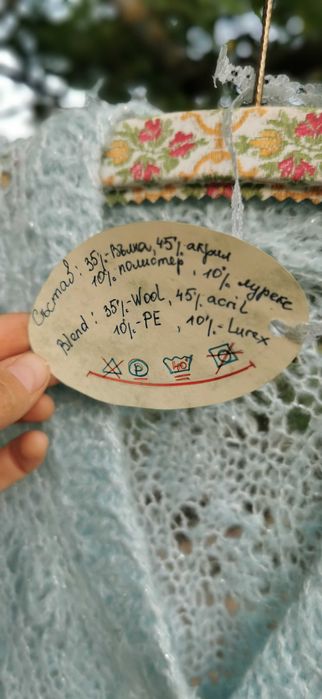 Състав: 35%-Вълна, 45% акрил
10% полиестер, 10% лурекс
Blend: 35%-Wool, 45% acril
10%-PE , 10%-Lurex
P 40